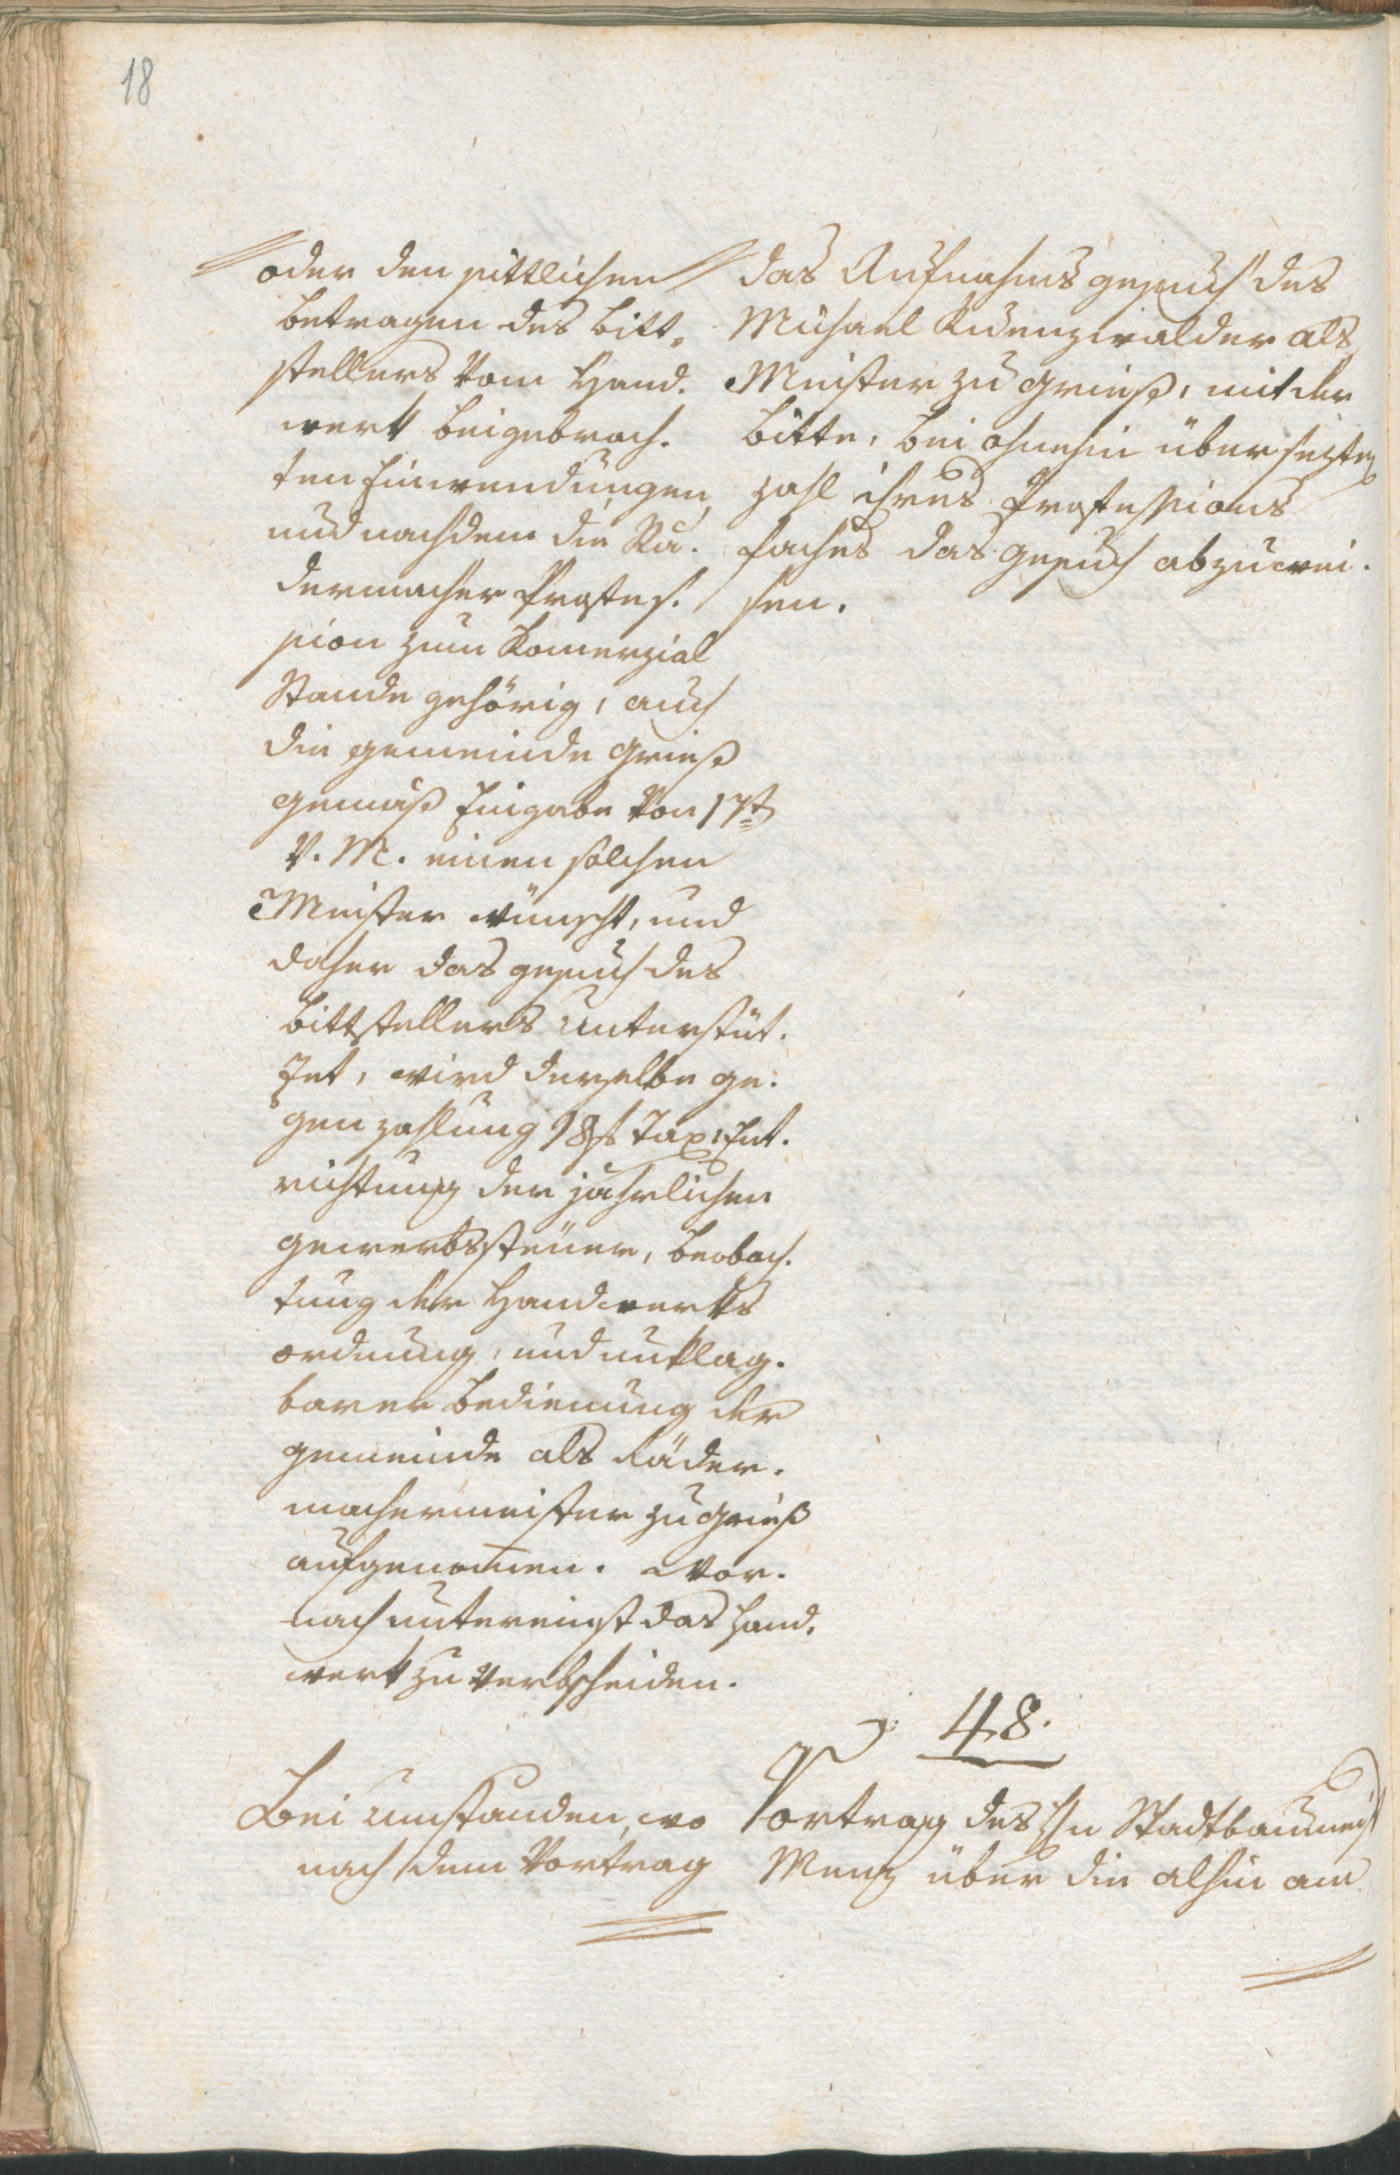 18
oder den sittlichen
betragen des Bitt-
stellers vom Hand-
werk beigebrach-
ten Einwendungen,
und nachdem die Rä-
dermacher Profes-
sion zum Komerzial
Stande gehörig, auch
die gemeinde Grieß
gemäß Eingabe von 17t
v. M. einen solchen
Meister wünscht, und
daher das gesuch des
Bittstellers unterstüt-
zet, wird derselbe ge-
gen zahlung 18 f Tax, Ent-
richtung der jährlichen
gewerbssteuer, beobach-
tung der Handwerks
ordnung, und unklag-
barer bedienung der
gemeinde als Räder-
machermeister zu Grieß
aufgenomen. Wor-
nach untereinst das Hand-
werk zu verbscheiden.
das Aufnahms gesuch des
Michael Kuenzwalder als
Meister zu Grieß, mit der
bitte, bei ohnehin übersezter
zahl ihres Professions
faches das gesuch abzuwei-
sen.
48.
Bei umständen, wo
nach dem Vortrag
Vortrag des Hn Stadtbaumeist
Menz über die alhie am